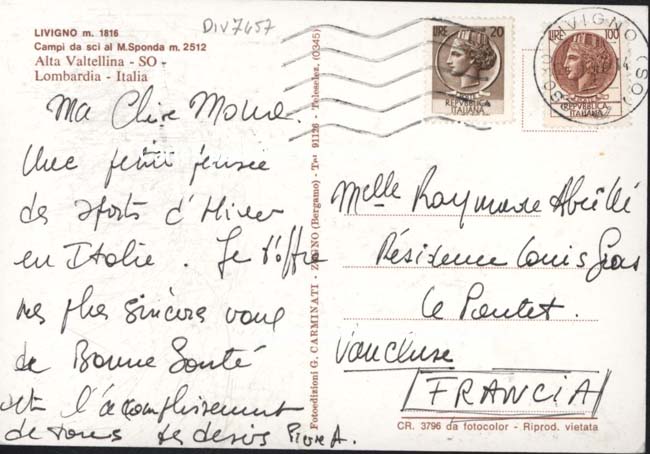 DIV7657
LIVIGNO m. 1816
Campi da sci al M.Sponda m. 2512
Alta Valtellina - SO -
Lombardia - Italia
Ma Chère
Une petite pensée
des sports d'Hiver
en Italie. Je t'offre
mes plus sincères vœux
de Bonne Santé
et l'accomplissement
de tous tes désirs Pierre A.
Fotoedizioni G. CARMINATI - ZOGNO (Bergamo) - Tel. 91126 - Teleselez. (0345)
LIRE 20
REPVBBLICA
ITALIANA
LIRE 100
REPVBBLICA
ITALIANA
LIVIGNO (SO)
Melle Raymonde
Résidence Louis Gros
Le Pontet.
Vaucluse
FRANCIA
CR. 3796 da fotocolor - Riprod. vietata